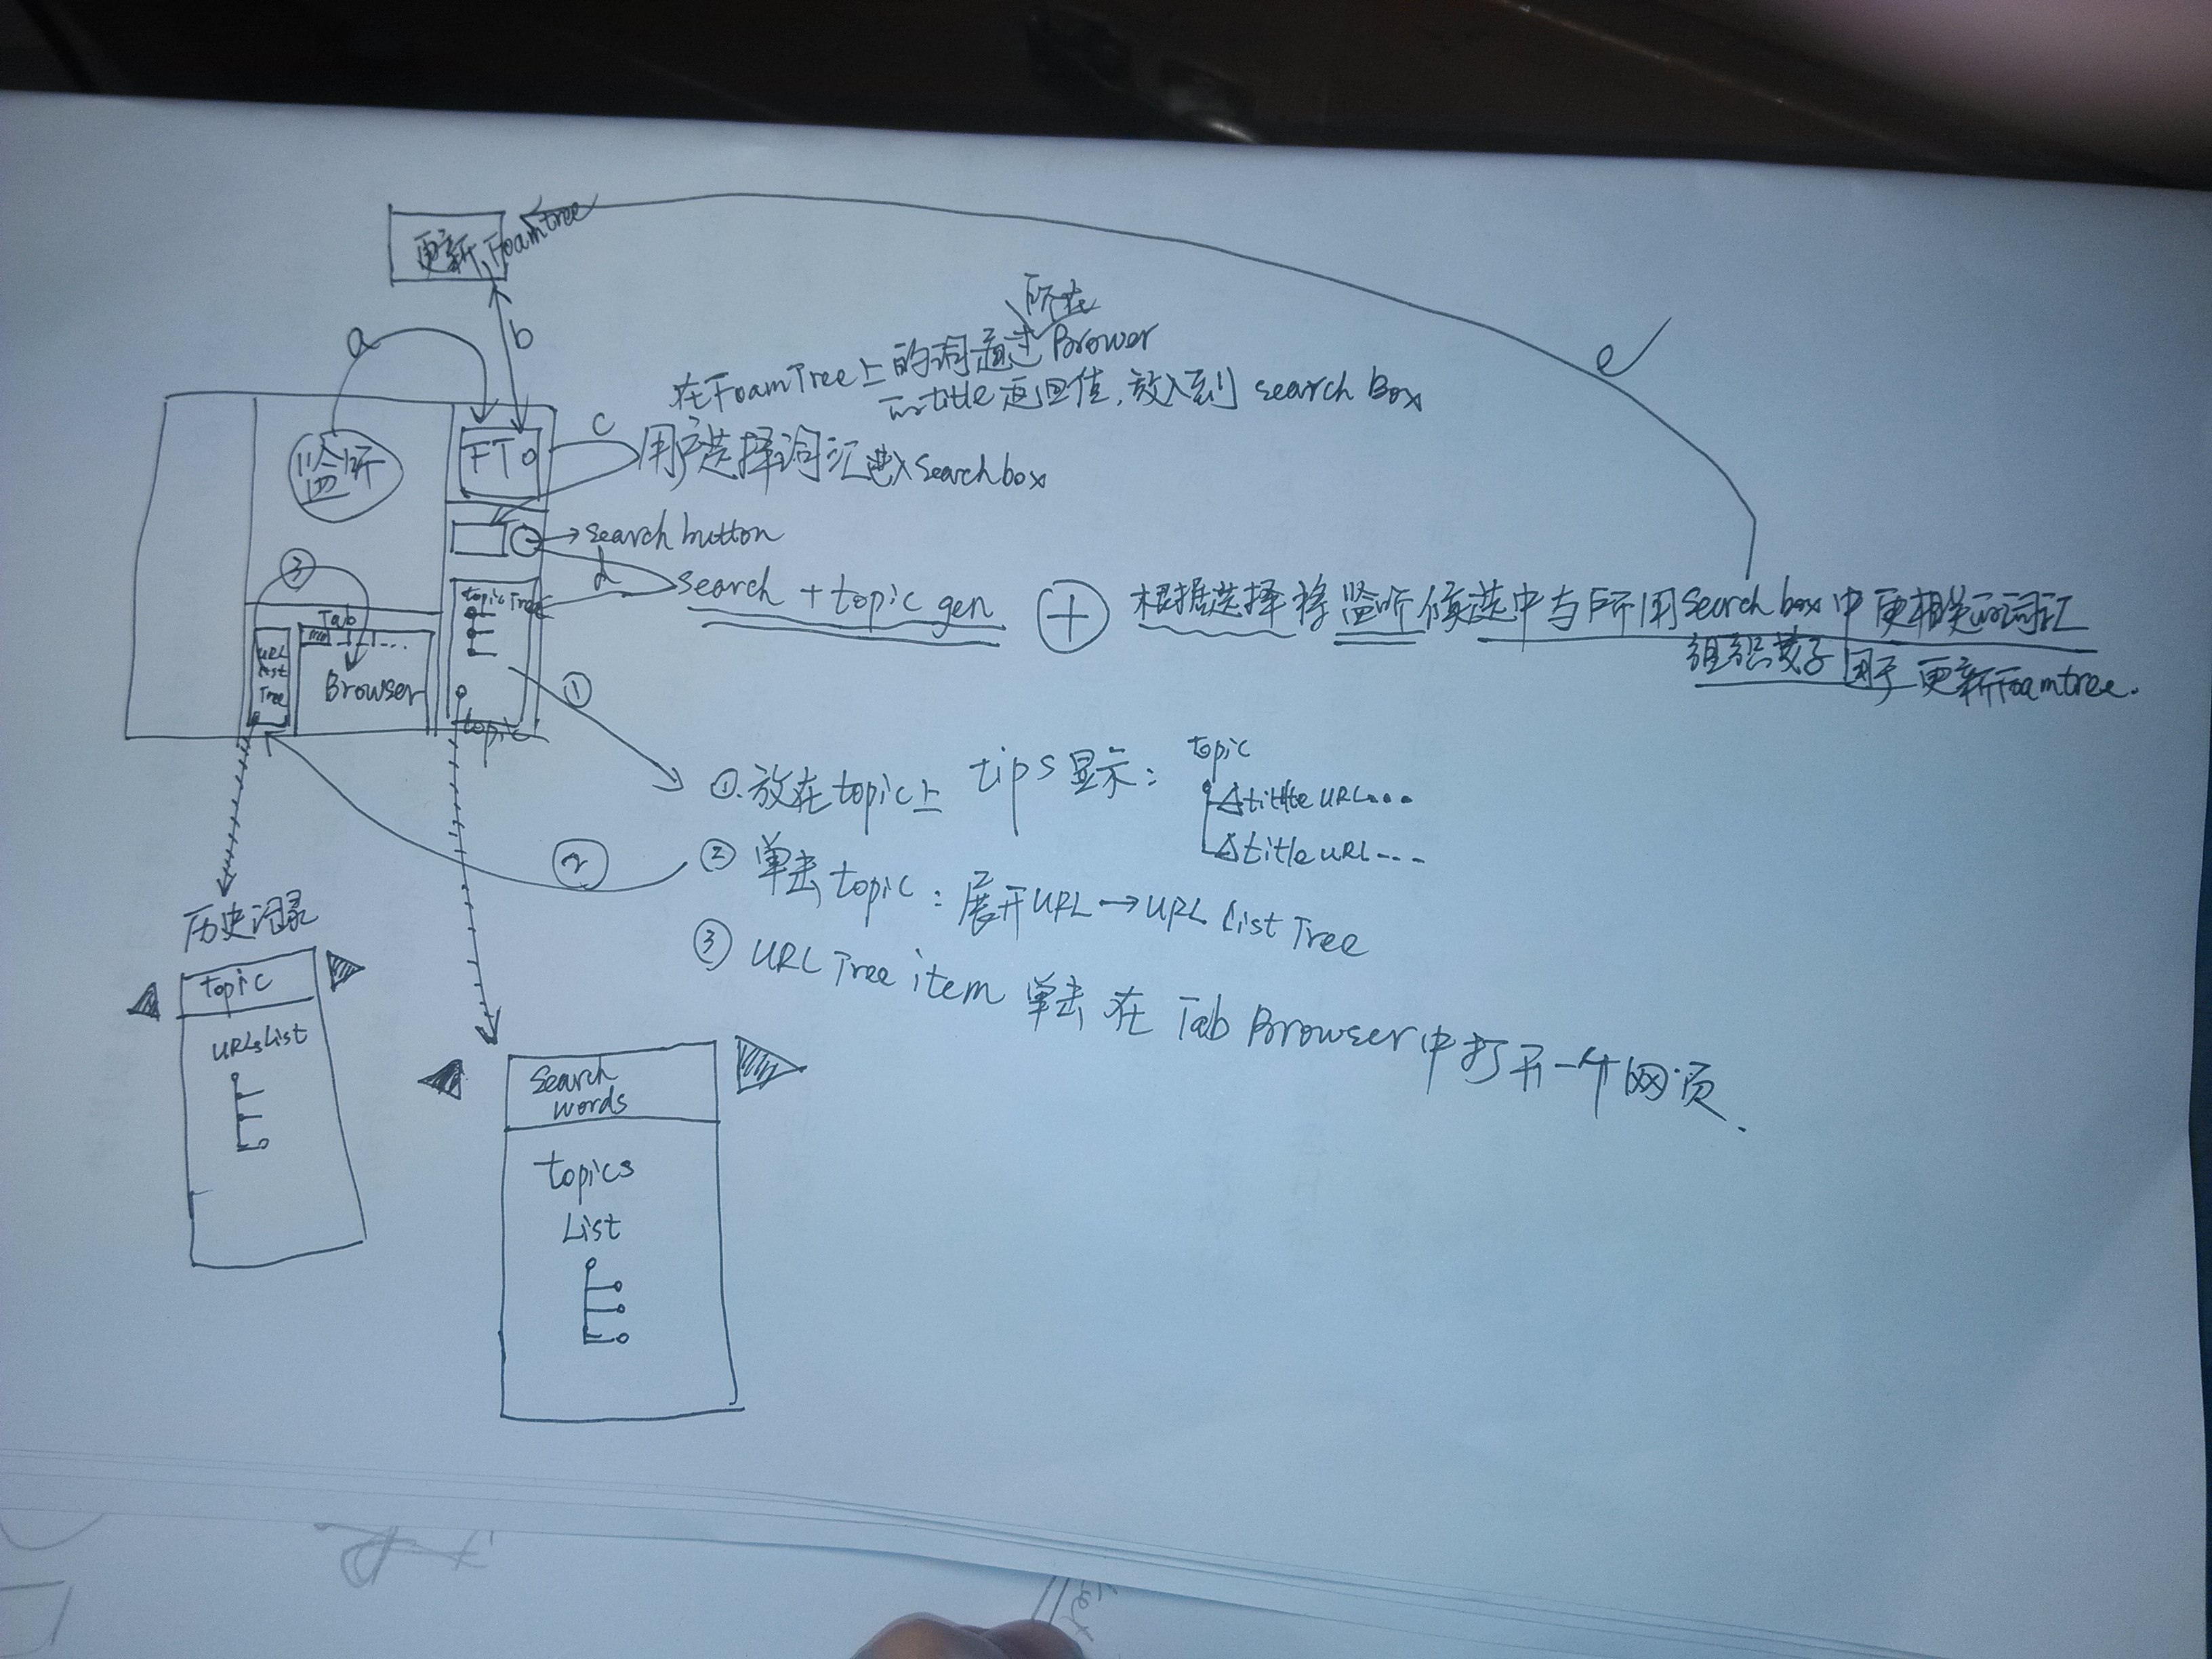 更新 Foamtree
a
b
所在
在FoamTree上的词通过 Brower
的title返回值,放入到 search Box
e
c
监听
FTO
用户选择词汇进入searchbox
search button
d
search + topic gen
根据选择将监听候选中与所用search box中更相关的词汇
用于更新Foamtree.
③
Tab
URL
List
Tree
Browser
topic Tree
topic
①
①.放在topic上 tips显示:
topic
title URL...
title URL...
②
② 单击topic:展开URL→URL List Tree
③ URL Tree item 单击 在 Tab Browser中打开一个网页.
历史记录
topic
URLs List
search
words
topics
List